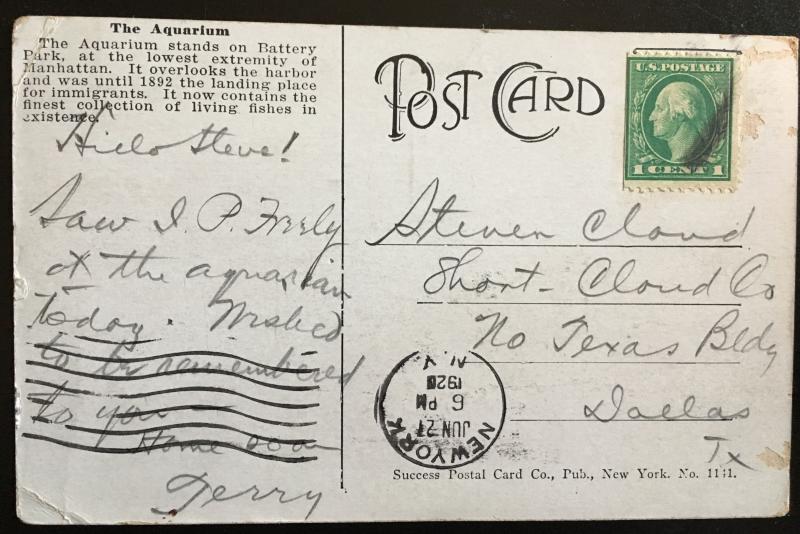 The Aquarium
The Aquarium stands on Battery
Park, at the lowest extremity of
Manhattan. It overlooks the harbor
and was until 1892 the landing place
for immigrants. It now contains the
finest collection of living fishes in
existence.
Hello Steve!
Saw I. P. Freely
at the aquarium
today. Wished
to be remembered
to you
Home soon
Gerry
POST CARD
U.S. POSTAGE
1 CENT 1
Steven Cloud
Short-Cloud Co
No Texas Bldg
Dallas
Tx
NEW YORK
JUN 21
6 PM
1920
N.Y.
Success Postal Card Co., Pub., New York. No. 1141.